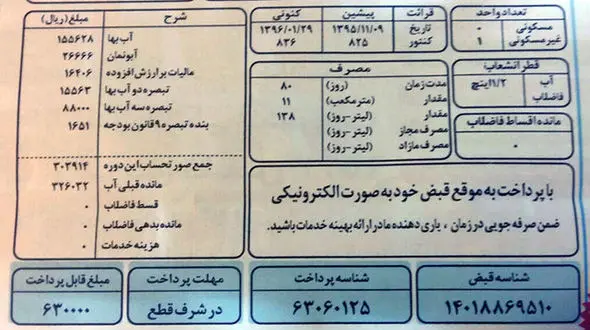 تعداد واحد
مسکونی ۰
غیرمسکونی ۱
قطر انشعاب
آب ۱/۲اینچ
فاضلاب
مانده اقساط فاضلاب
۰
قرائت پیشین کنونی
تاریخ ۱۳۹۵/۱۱/۰۹ ۱۳۹۶/۰۱/۲۹
کنتور ۸۲۵ ۸۳۶
مصرف
مدت زمان (روز) ۸۰
مقدار (مترمکعب) ۱۱
مقدار (لیتر-روز) ۱۳۸
مصرف مجاز (لیتر-روز)
مصرف مازاد (لیتر-روز)
شرح مبلغ(ریال)
آب بها ۱۵۵۶۲۸
آبونمان ۲۶۶۶۶
مالیات بر ارزش افزوده ۱۶۴۰۶
تبصره دو آب بها ۱۵۵۶۳
تبصره سه آب بها ۸۸۰۰۰
بنده تبصره ۹ قانون بودجه ۱۶۵۱
جمع صورتحساب این دوره ۳۰۳۹۱۴
مانده قبلی آب ۳۲۶۰۳۲
قسط فاضلاب ۰
مانده بدهی فاضلاب ۰
هزینه خدمات ۰
با پرداخت به موقع قبض خود به صورت الکترونیکی
ضمن صرفه جویی در زمان ، یاری دهنده ما در ارائه بهینه خدمات باشید.
شناسه قبض
۱۴۰۱۸۸۶۹۵۱۰
شناسه پرداخت
۶۳۰۶۰۱۲۵
مهلت پرداخت
در شرف قطع
مبلغ قابل پرداخت
۶۳۰۰۰۰